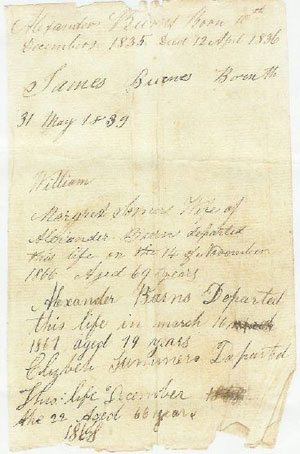 Alexander Burnes Born 10th
December 1835 Died 12 April 1836
James Burnes Born th
31 May 1839
William
Margret Somers Wife of
Alexander Burns departed
this life on the 14 of November
1866 Aged 69 years
Alexander Barns Departed
this life in march 16
1867 aged 74 years
Elizbeth Summers Departed
This life December
the 22 Aged 66 years
1868